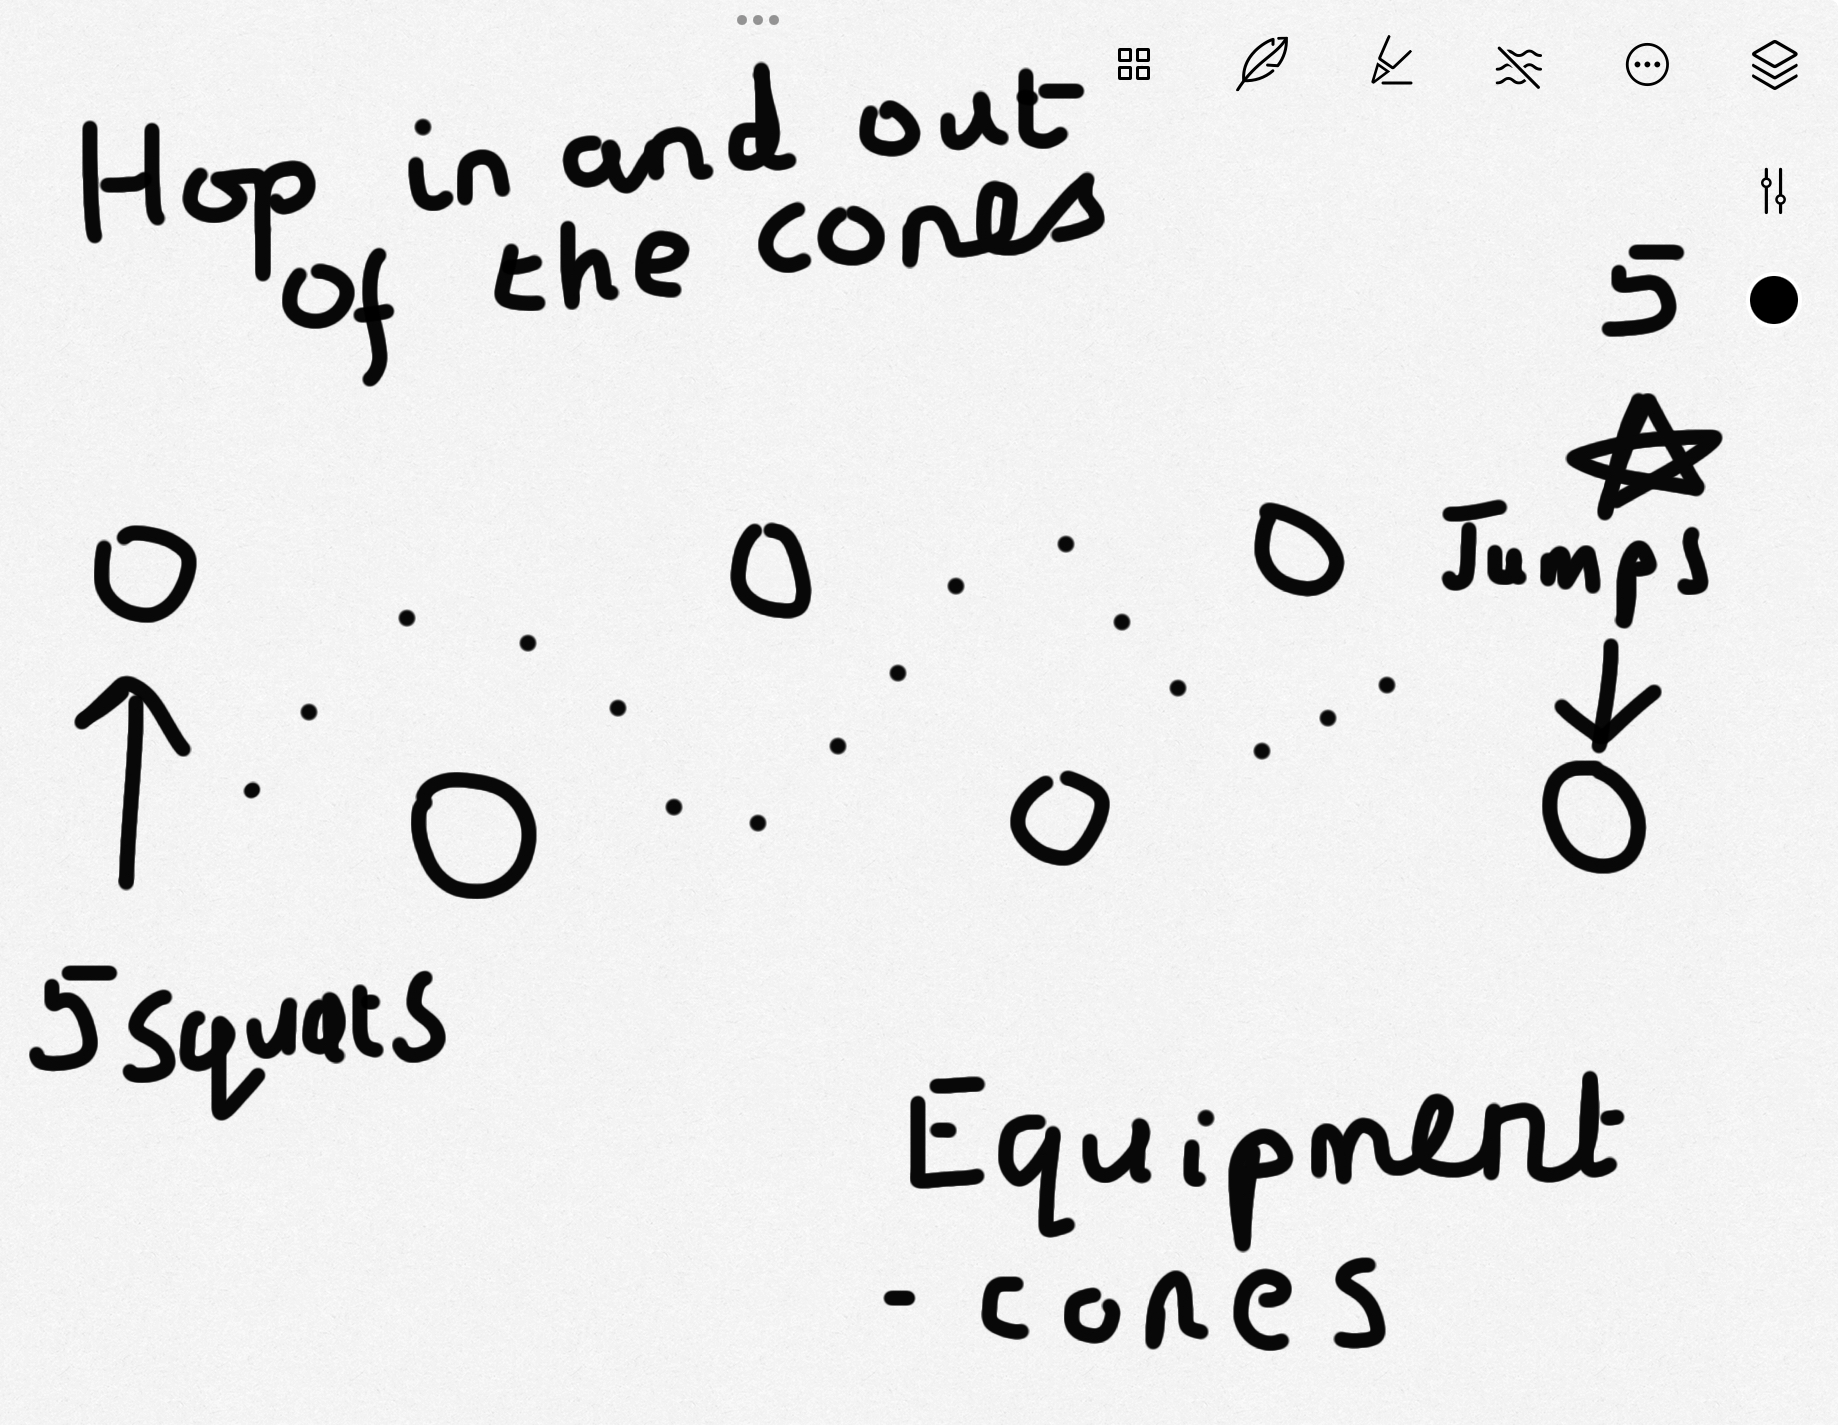 Hop in and out
of the cones
5
Jumps
5 squats
Equipment
- cones